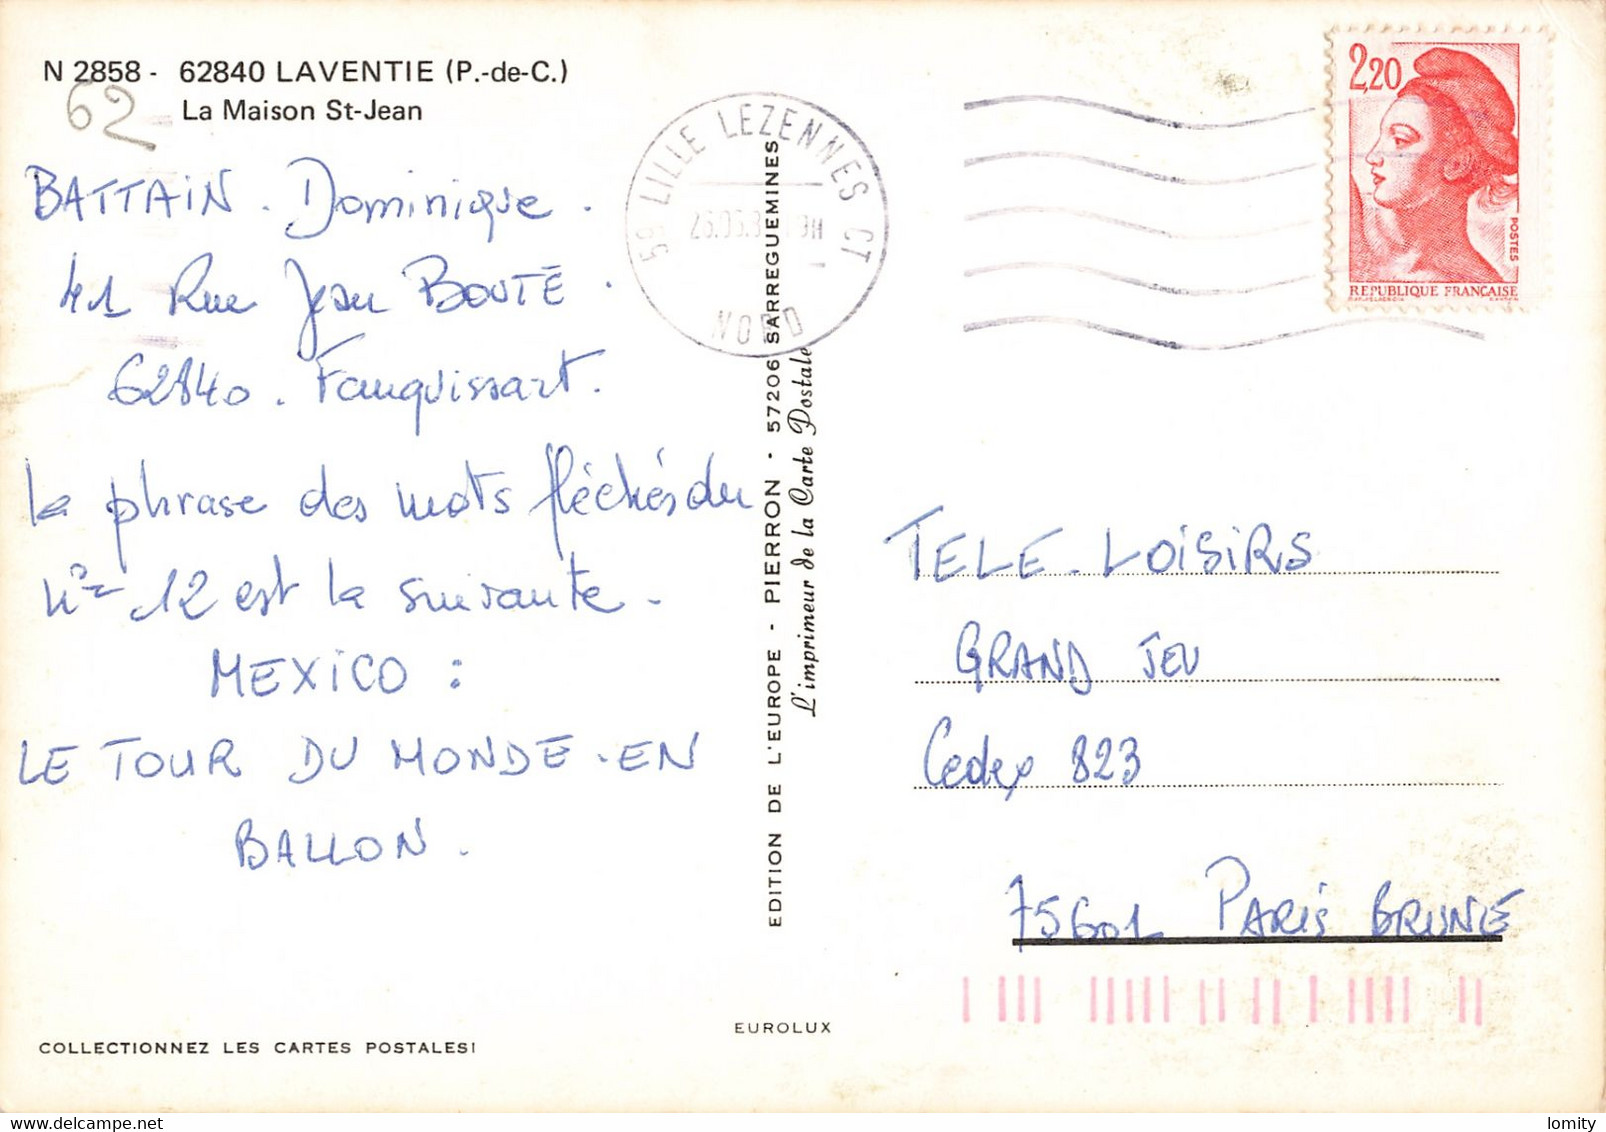 N 2858 - 62840 LAVENTIE (P.-de-C.)
La Maison St-Jean
62
BATTAIN. Dominique.
41 Rue Jean BOUTÉ.
62840. Fauquissart.
La phrase des mots fléchés du
n°= 12 est la suivante.
MEXiCO :
LE TOUR DU MONDE.EN
BALLON.
COLLECTIONNEZ LES CARTES POSTALES!
59 LILLE LEZENNES CT
NORD
EDITION DE L'EUROPE - PIERRON - 57206 SARREGUEMINES
L'imprimeur de la Carte Postale
EUROLUX
2,20
POSTES
REPUBLIQUE FRANÇAISE
TELE-LOiSiRS
GRAND JEU
Cedex 823
75601 PARiS BRUNE
lomity